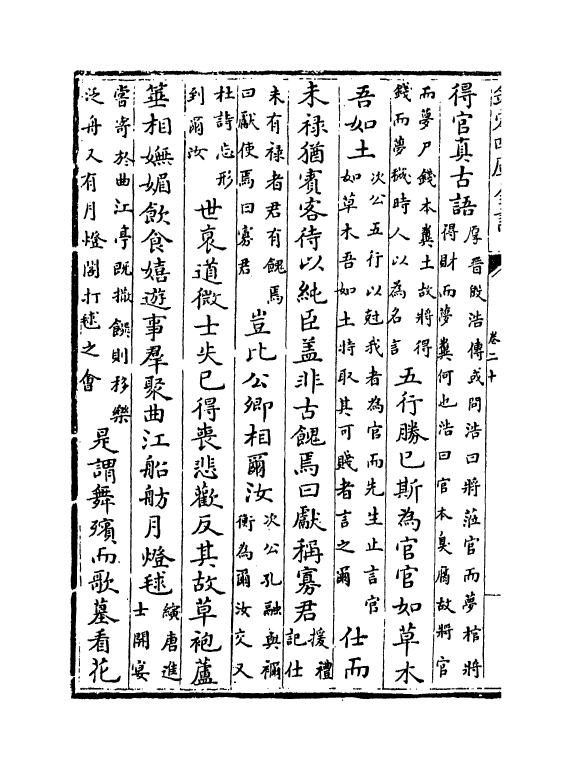 欽定四庫全書
卷二十
得官真古語厚晉殷浩傳或問浩曰將蒞官而夢棺將得財而夢糞何也浩曰官本臭腐故將官
而夢尸錢本糞土故將得錢而夢穢時人以為名言五行勝已斯為官官如草木
吾如土次公五行以尅我者為官而先生止言官如草木吾如土特取其可賤者言之爾仕而
未禄猶賓客待以純臣盖非古餽焉曰獻稱寡君援禮記仕
未有禄者君有餽焉曰獻使焉曰寡君豈比公卿相爾汝次公孔融與禰衡為爾汝交又
杜詩忘形到爾汝世衰道微士失已得喪悲歡反其故草袍蘆
箠相嫵媚飲食嬉遊事羣聚曲江船舫月燈毬縯唐進士開宴
嘗寄於曲江亭既撤饌則移樂泛舟又有月燈閣打毬之會是謂舞殯而歌墓看花